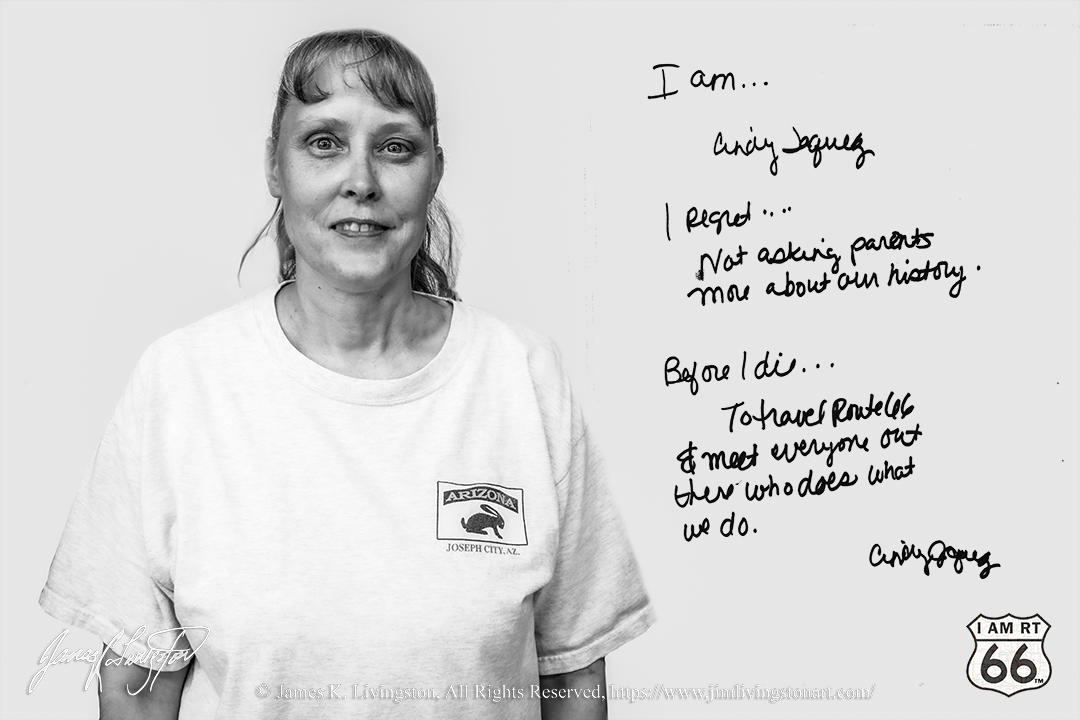 I am...
Cindy Jaquez
I Regret....
Not asking parents
more about our history.
Before I die...
To travel Route 66
& meet everyone out
there who does what
we do.
Cindy Jaquez
ARIZONA
JOSEPH CITY, AZ.
I AM RT
66
TM
James K Livingston
© James K. Livingston, All Rights Reserved, https://www.jimlivingstonart.com/